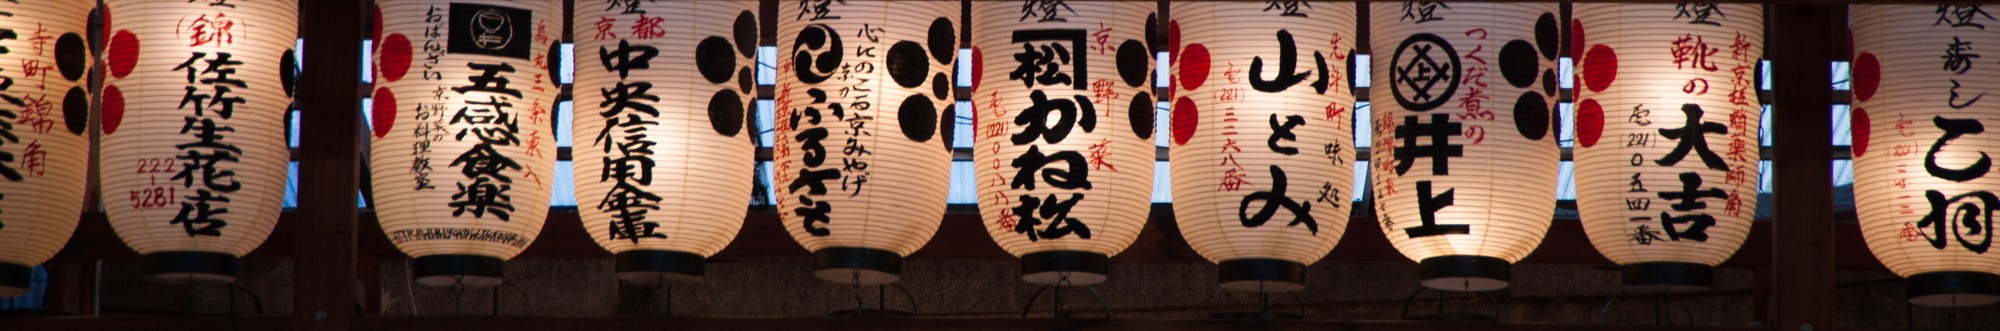 寺町錦角
(錦)
佐竹生花店
222
5281
烏丸三条東入
五感食楽
おばんざい京野菜の
お料理教室
燈
京都
中央信用金庫
燈
心にのこる京みやげ
京の
ふるさと
燈
京野菜
松
かね松
燈
先斗町味処
山とみ
電(221)三二六八番
燈
つくだ煮の
上
井上
燈
新京極蛸薬師角
靴の
大吉
電(221)0五四一番
燈
寿し
乙羽